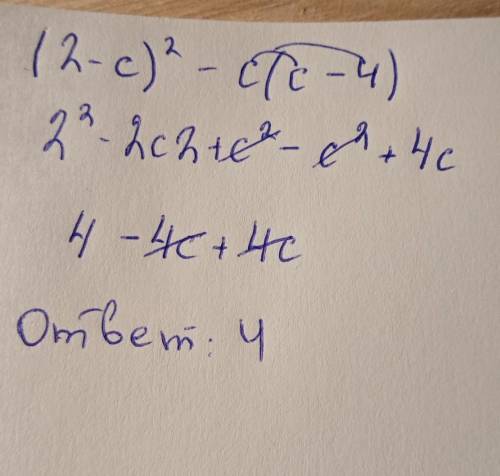 (2-c)² - c(c-4)
2² - 2c2 + c² - c² + 4c
4 - 4c + 4c
Ответ: 4